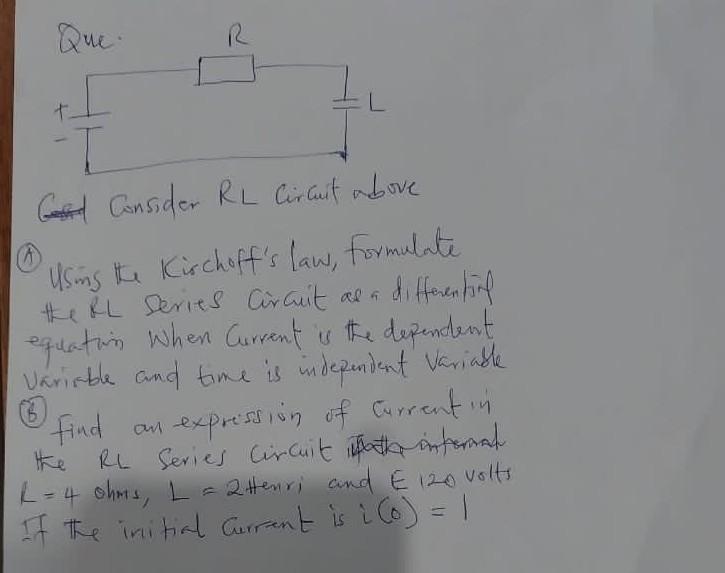 Que.
R
+
-
L
Consider RL Circuit above
(A)
Using the Kirchoff's law, formulate
the RL Series Circuit as a differential
equation When Current is the dependent
Variable and time is independent Variable
(B)
find an expression of Current in
the RL Series Circuit
R = 4 ohms, L = 2 Henri and E 120 volts
If the initial Current is i(0) = 1